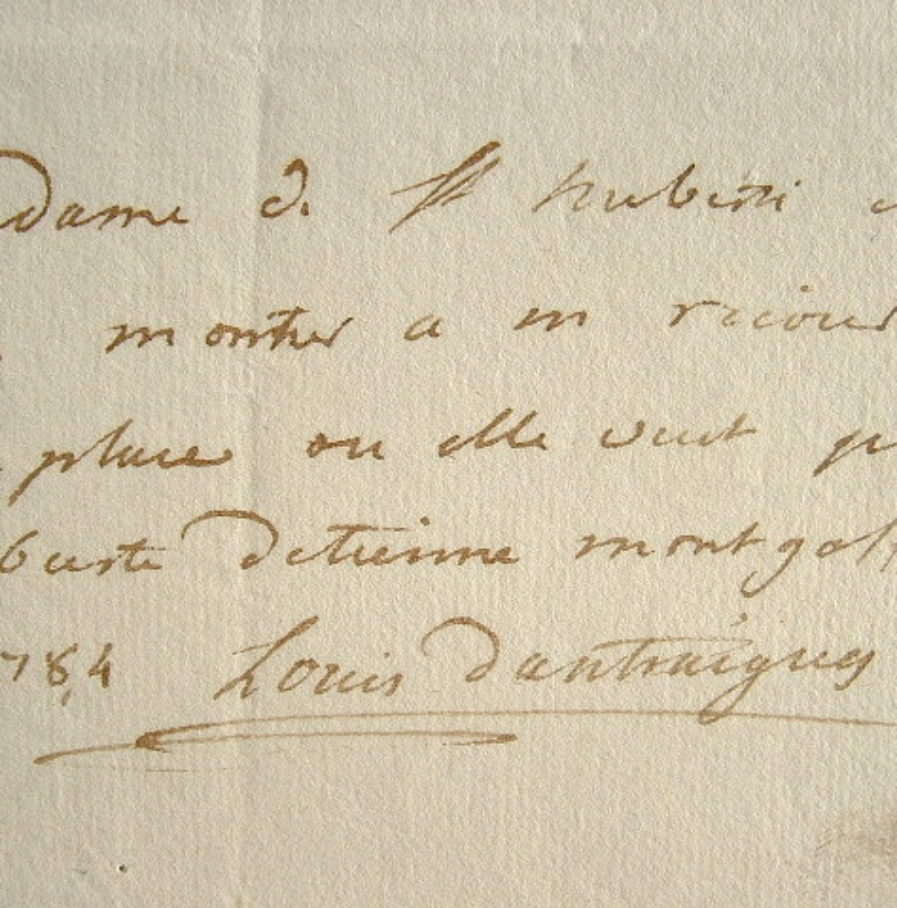 dame d. St huberti
montrer a m
place ou elle veut p
buste detienne montgolf
784 Louis dantraigues